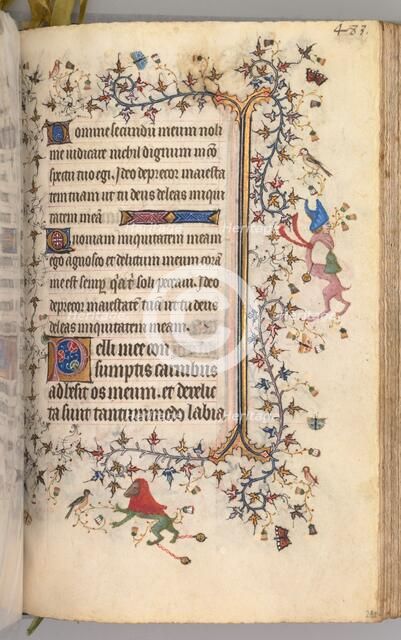 483.
Domine secundū meum noli
me iudicare nichil dignum in cō
spectu tuo egi. Ideo deprecor maiesta
tem tuam ut tu deus deleas iniqui
tatem meā
Quoniam iniquitatem meam
ego agnosco et delictum meum corā
me est semp̄ q̄a t̄ soli peccaui. Ideo
deprecor maiestatē tuā ut tu deus
deleas iniquitatem meam.
Pelli mee con
sumptis carnibus
adhesit os meum. et dereli
ta sunt tantummodo labia
Heritage
Heritage
Heritage